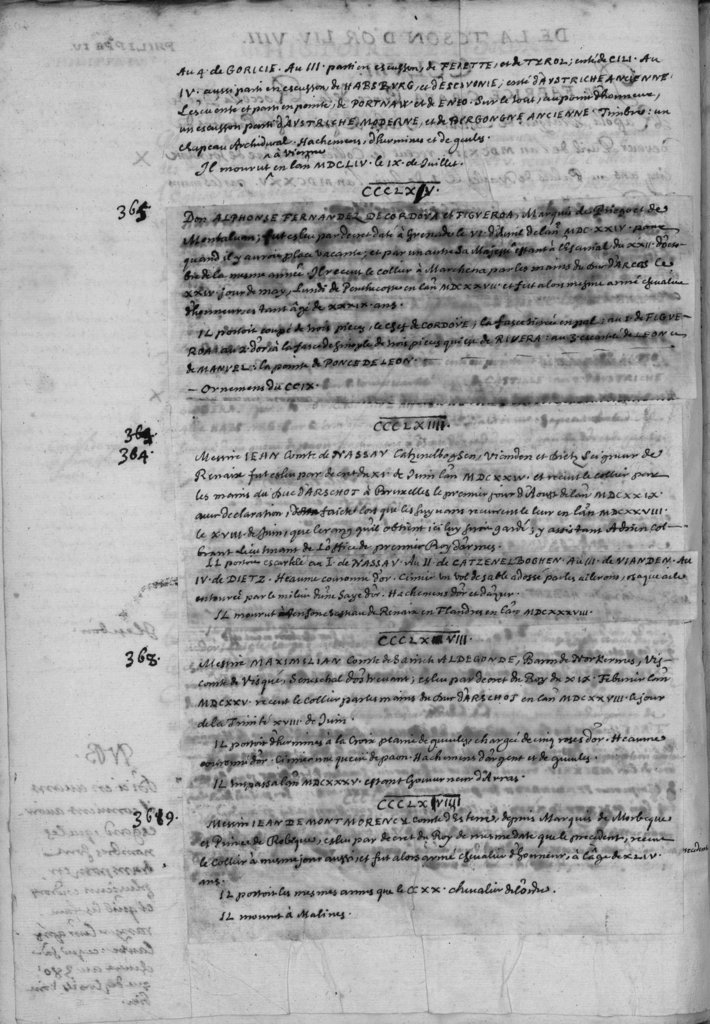 Au 4. de GORICIE. Au III. parti en escusson, de FERETTE, et de TYROL; enté de CILI. Au
IV. aussi parti en escusson, de HABSBURG, et d'ESCLVONIE; enté d'AUSTRICHE ANCIENNE.
et parti en pointe, de PORTNAW et de Sur le tout, au point d'honneur,
un escusson parti d'AUSTRICHE MODERNE, et de BORGONGNE ANCIENNE. Timbre: un
Chapeau Archiducal. Hachemens, d'hermines et de gueules.
à Vienne
Il mourut en l'an MDCLIV. le IX. de Juillet.
CCCLXV.
365
Don ALPHONSE FERNANDEZ DE CORDOVA et FIGUEROA, Marquis de Priego et de
Montaluan; fut esleu par decret daté à Grenade le VI. d'Avril de l'an MDCXXIV. pour
quand il y auroit place vacante; et par un autre de sa Majesté estant à l'Escurial du XXII. d'Octo-
bre de la mesme année. Il receut le collier à Marchena, par les mains du Duc d'ARCOS le
XXIV. jour de may, Lundi de Pentecoste en l'an MDCXXVII. et fut alors mesme armé chevalier
d'honneur, estant âgé de XXXIX. ans.
IL portoit coupé de trois pieces, le chef de CORDOVE; la fasce tiercée en pal: au 1. de FIGUE-
ROA: au 2. d'or, à la fasce de simple de trois pieces qui est de RIVERA: au 3. escartelé de LEON et
de MANUEL: la pointe de PONCE DE LEON.
— Ornemens du CCIX.
CCCLXIIII.
364
364.
Messire IEAN Comte de NASSAU Catzenelbogen, Vianden et Dietz, Seigneur de
Renaix fut esleu par decret du XI. de Juin l'an MDCXXIV. et receut le collier par
les mains du Duc d'ARSCHOT à Bruxelles le premier jour d'Aoust de l'an MDCXXIX.
avec declaration, faicte lors que les suyvans receurent le leur en l'an MDCXXVIII.
le XVIII. de Juin, que le rang qu'il obtient ici luy seroit gardé; y assistant Adrien Col-
brant lieutenant de l'office de premier Roy d'armes.
IL portoit escartelé au I. de NASSAU. Au II. de CATZENELBOGHEN. Au III. de VIANDEN. Au
IV. de DIETZ. Heaume couronné d'or. Cimier un vol de sable adossé par les ailerons,
entouré par le milieu d'une d'or. Hachemens d'or et d'azur.
IL mourut à de Renaix en Flandres en l'an MDCXXXVIII.
CCCLXVIII.
368.
Messire MAXIMILIAN Comte de Saincte ALDEGONDE, Baron de Norkermes, Vis-
comte de Visque, Seneschal d'Ostrevant; esleu par decret du Roy du XIX. Febvrier l'an
MDCXXV. receut le Collier par les mains du Duc d'ARSCHOT en l'an MDCXXVIII. le jour
de la Trinité XVIII. de Juin.
IL portoit d'hermines à la Croix plaine de gueules, chargée de cinq roses d'or. Heaume
couronné d'or. Cimier une queue de paon. Hachemens d'argent et de gueules.
IL trespassa l'an MDCXXXV. estant Gouverneur d'Arras.
CCCLXVIIII
3689.
Messire IEAN DE MONTMORENCY comte d'Esterre, depuis Marquis de Morbeque
et Prince de Robeque, esleu par decret du Roy de mesme date que le precedent, receut
le Collier à mesme jour aussi, et fut alors armé chevalier d'honneur, à l'âge de XLIV.
ans.
IL portoit les mesmes armes que le CXX. chevalier de l'ordre.
IL mourut à Malines.